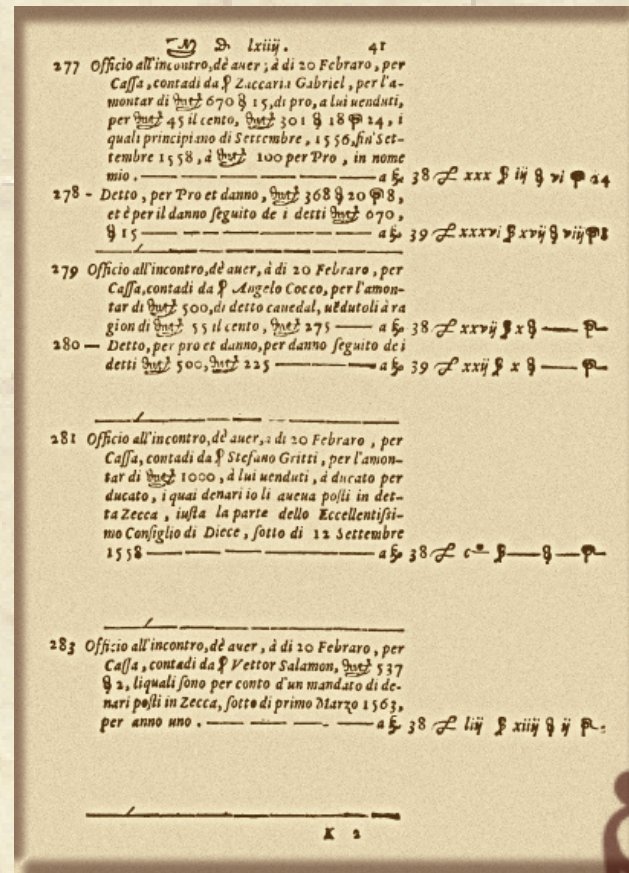 M D lxiiij. 41
277 Officio all'incontro, dè auer; à di 20 Febraro, per
Cassa, contadi da Zaccaria Gabriel, per l'a-
montar di 670 15, di pro, a lui uenduti,
per 45 il cento, 301 18 24, i
quali principiano di Settembre, 1556, fin Set-
tembre 1558, à 100 per Pro, in nome
mio. — a 38 xxx iij vi 24
278 - Detto, per Pro et danno, 368 20 8,
et è per il danno seguito de i detti 670,
15 — a 39 xxxvi xvij viij 8
279 Officio all'incontro, dè auer, à di 20 Febraro, per
Cassa, contadi da Angelo Cocco, per l'amon-
tar di 500, di detto cauedal, uēdutoli à ra
gion di 55 il cento, 275 — a 38 xxvij x —
280 — Detto, per pro et danno, per danno seguito de i
detti 500, 225 — a 39 xxij x —
281 Officio all'incontro, dè auer, à di 20 Febraro, per
Cassa, contadi da Stefano Gritti, per l'amon-
tar di 1000, à lui uenduti, à ducato per
ducato, i quai denari io li aueua posti in det-
ta Zecca, iusta la parte dello Eccellentissi-
mo Consiglio di Diece, sotto di 12 Settembre
1558 — a 38 c — —
283 Officio all'incontro, dè auer, à di 20 Febraro, per
Cassa, contadi da Vettor Salamon, 537
2, liquali sono per conto d'un mandato di de-
nari posti in Zecca, sotto di primo Marzo 1563,
per anno uno. — a 38 liij xiiij ij
K 2